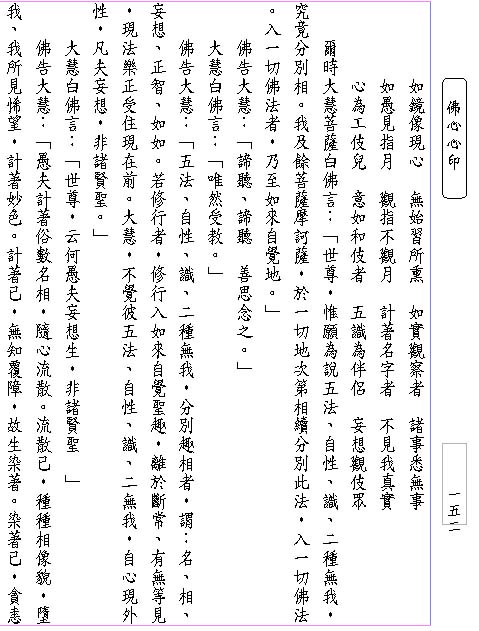 佛心心印
一五二
如鏡像現心　無始習所熏　如實觀察者　諸事悉無事
如愚見指月　觀指不觀月　計著名字者　不見我真實
心為工伎兒　意如和伎者　五識為伴侶　妄想觀伎眾
爾時大慧菩薩白佛言：「世尊．惟願為說五法、自性、識、二種無我．
究竟分別相。我及餘菩薩摩訶薩．於一切地次第相續分別此法．入一切佛法
。入一切佛法者．乃至如來自覺地。」
佛告大慧：「諦聽、諦聽　善思念之。」
大慧白佛言：「唯然受教。」
佛告大慧：「五法、自性、識、二種無我．分別趣相者．謂：名、相、
妄想、正智、如如。若修行者．修行入如來自覺聖趣．離於斷常、有無等見
．現法樂正受住現在前。大慧．不覺彼五法、自性、識、二無我．自心現外
性．凡夫妄想．非諸賢聖。」
大慧白佛言：「世尊．云何愚夫妄想生．非諸賢聖　」
佛告大慧：「愚夫計著俗數名相．隨心流散。流散已．種種相像貌．墮
我、我所見悕望．計著妙色。計著已．無知覆障．故生染著。染著已．貪恚